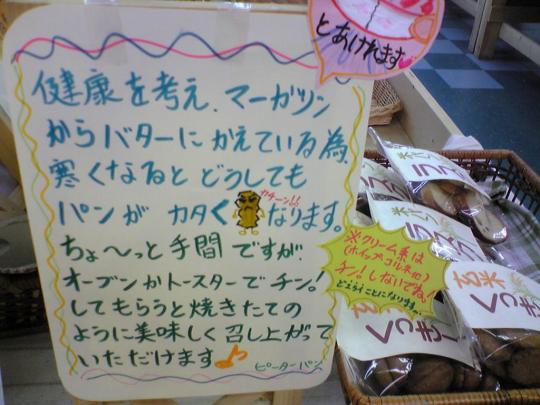 とあけれます
健康を考え、マーガリン
からバターにかえている為、
寒くなるとどうしても
パンがカタく
ガチーン!!
なります。
ちょ〜っと手間ですが、
オーブンかトースターでチン。!
してもらうと焼きたての
ように美味しく召し上がって
いただけます♪
ピーターパン
※クリーム系は
(ホイップ・コルネ他)
チン!しないでね!
どえらいことになります。
ラスク
ラスク
玄米
くっきー
くっきー